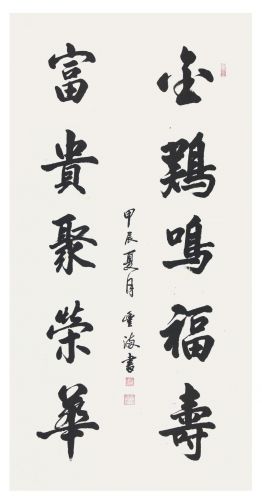 金鷄鳴福壽
富貴聚榮華
甲辰夏月雲海書